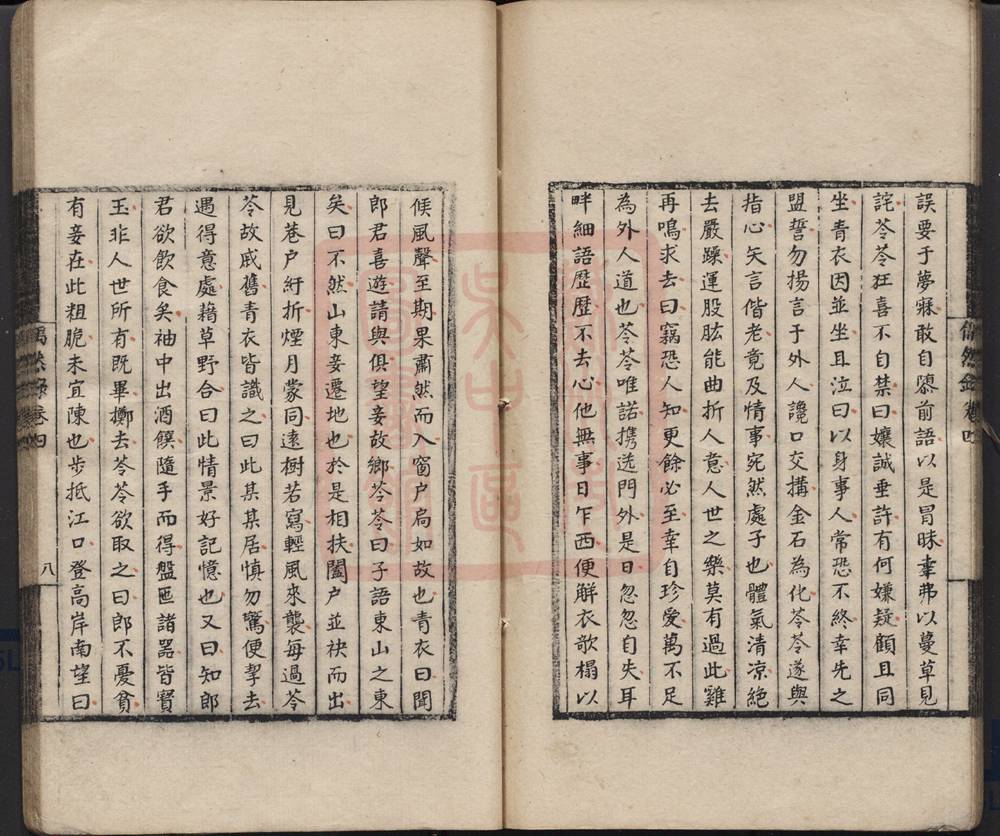 誤要于夢寐敢自隳前語以是冒昧幸弗以蔓草見
詫苓苓狂喜不自禁曰孃誠垂許有何嫌疑顧且同
坐青衣因並坐且泣曰以身事人常恐不終幸先之
盟誓勿揚言于外人讒口交搆金石為化苓苓遂與
指心矢言偕老竟及情事宛然處子也體氣清凉絶
去嚴躁運股肱能曲折人意人世之樂莫有過此雞
再鳴求去曰竊恐人知更餘必至幸自珍愛萬不足
為外人道也苓苓唯諾携送門外是日忽忽自失耳
畔細語歴歴不去心他無事日乍西便解衣歌榻以
候風聲至期果肅然而入窗户扃如故也青衣曰聞
郎君喜遊請與俱望妾故鄉苓苓曰子語東山之東
矣曰不然山東妾遷地也於是相扶闔户並袂而出
見巷户紆折煙月蒙同遠樹若寫輕風來襲每過苓
苓故戚舊青衣皆識之曰此某某居慎勿驚便挈去
遇得意處藉草野合曰此情景好記憶也又曰知郎
君欲飲食矣袖中出酒饌隨手而得盤匜諸器皆寳
玉非人世所有既畢擲去苓苓欲取之曰郎不憂貧
有妾在此粗脆未宜陳也步抵江口登高岸南望曰
卷四
八